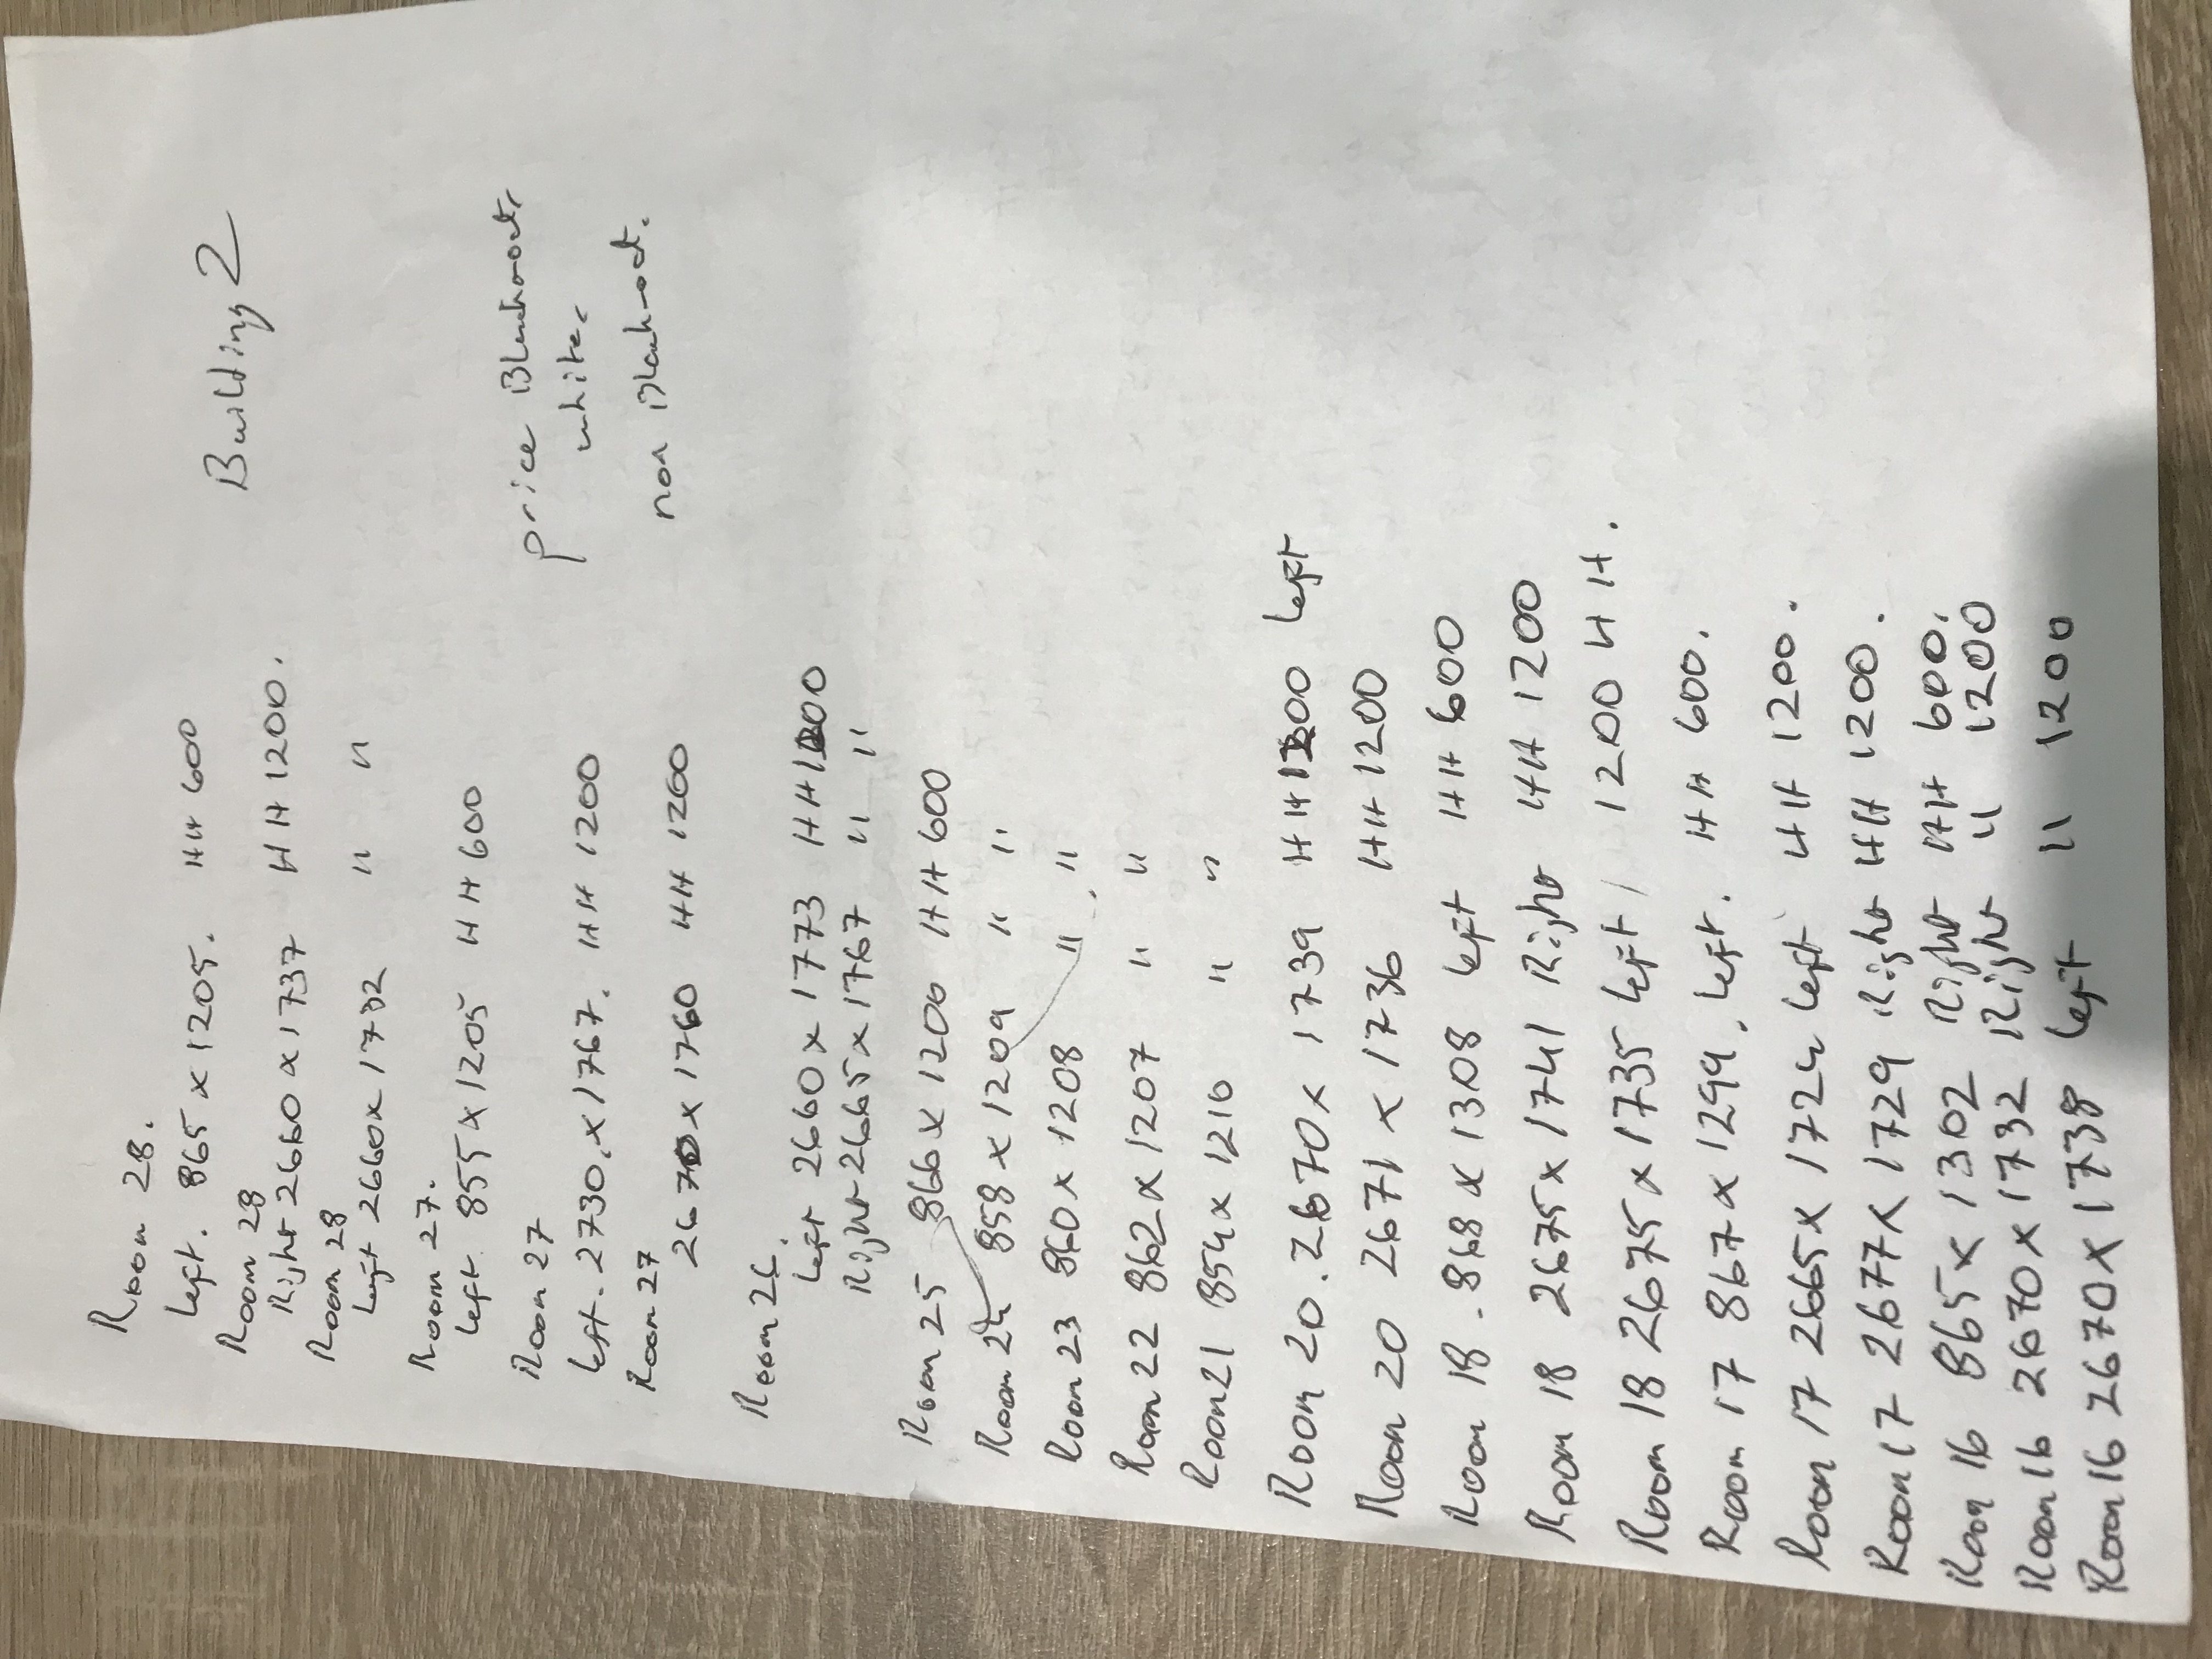 Building 2
Room 28.
Left. 865 x 1205. HH 600
Room 28
Right 2660 x 1737 HH 1200.
Room 28
Left 2660x 1732 " "
Room 27.
Left 855 x 1205 HH 600
Room 27
Left. 2730. x 1767. HH 1200
Room 27
2670 x 1760 HH 1200
price Blackout,
white,
non Blackout.
Room 26.
Left 2660 x 1773 HH 1200
Right 2665 x 1767 " "
Room 25 866 x 1206 HH 600
Room 24 858 x 1209 " "
Room 23 860 x 1208 " "
Room 22 862 x 1207 " "
Room 21 854 x 1210 " "
Room 20. 2670 x 1739 HH 1200 Left
Room 20 2671 x 1736 HH 1200
Room 18. 868 x 1308 Left HH 600
Room 18 2675 x 1741 Right HH 1200
Room 18 2675 x 1735 Left 1200 HH.
Room 17 867 x 1299. Left. HH 600.
Room 17 2665 x 1724 Left HH 1200.
Room 17 2677 x 1729 Right HH 1200.
Room 16 865 x 1302 Right HH 600.
Room 16 2670 x 1732 Right " 1200
Room 16 2670 x 1738 Left " 1200